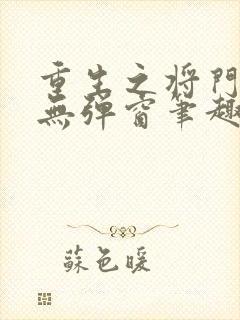 重生之将門
無弹窗筆趣
蘇色暖